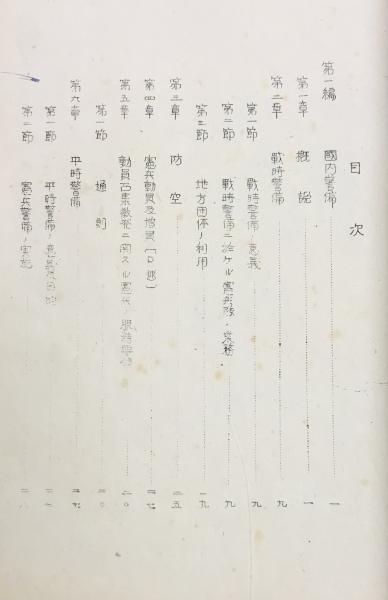 目次
第一編 國内警備 一
第一章 概説 一
第二章 戰時警備 九
第一節 戰時警備ノ意義 九
第二節 戰時警備ニ於ケル憲兵隊ノ業務 九
第三節 地方団体ノ利用 一九
第三章 防空 二五
第四章 憲兵動員及増員
第五章 動員召集徴発ニ関スル憲兵ノ服務 二〇
第一節 通則 二〇
第六章 平時警備
第一節 平時警備ノ意義
第二節 憲兵警備ノ実施